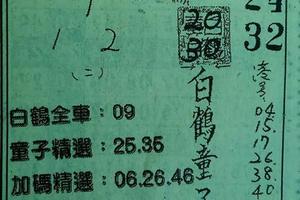 1 2
(二)
20
30
24
32
白鶴全車：09
童子精選：25.35
加碼精選：06.26.46
白鶴童子
04
15
17
26
38
40